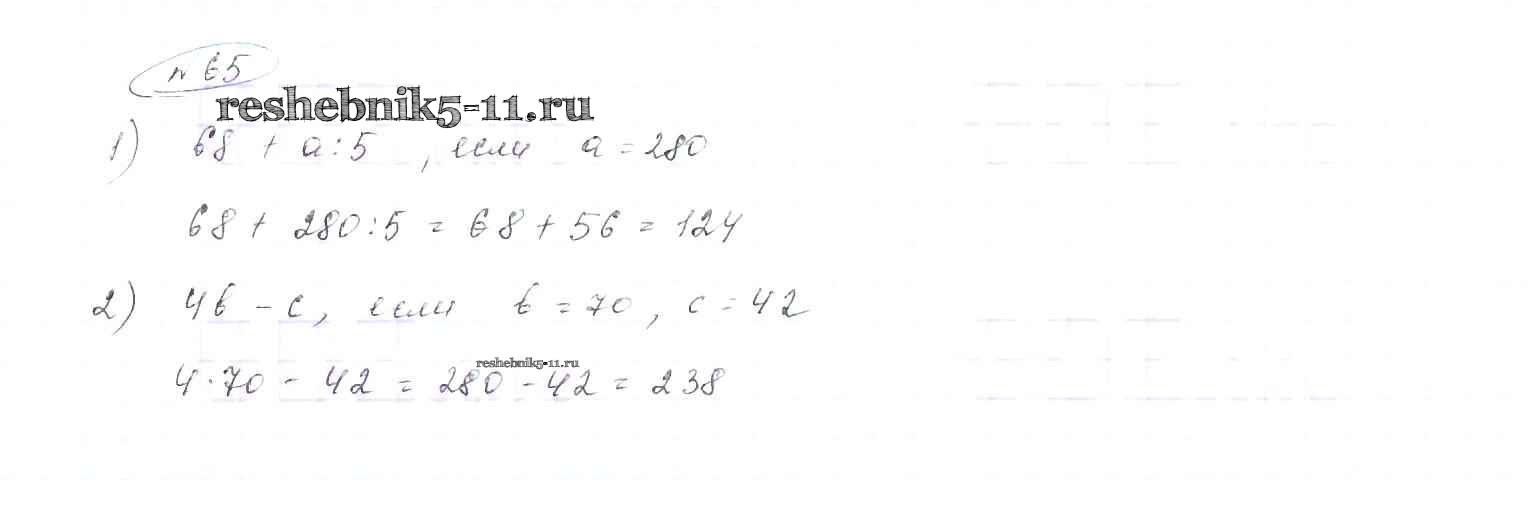 № 65
reshebnik5-11.ru
1) 68 + a : 5, если a = 280
68 + 280 : 5 = 68 + 56 = 124
2) 4b - c, если b = 70, c = 42
reshebnik5-11.ru
4 · 70 - 42 = 280 - 42 = 238